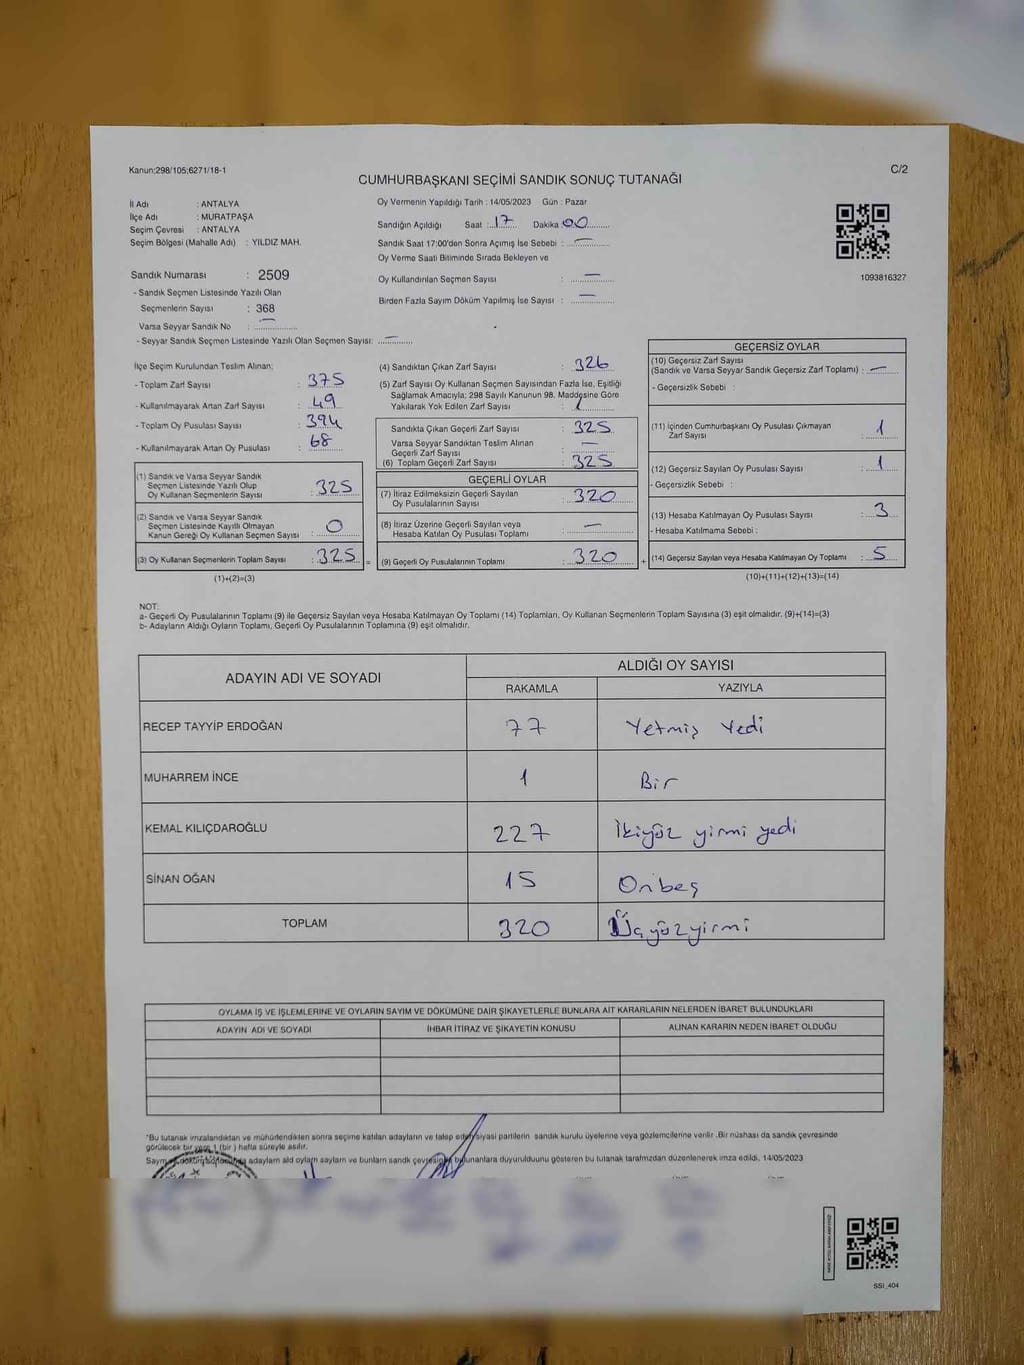 Kanun;298/105;6271/18-1
C/2
CUMHURBAŞKANI SEÇİMİ SANDIK SONUÇ TUTANAĞI
İl Adı : ANTALYA
İlçe Adı : MURATPAŞA
Seçim Çevresi : ANTALYA
Seçim Bölgesi (Mahalle Adı) : YILDIZ MAH.
Sandık Numarası : 2509
- Sandık Seçmen Listesinde Yazılı Olan
Seçmenlerin Sayısı : 368
Varsa Seyyar Sandık No : —
- Seyyar Sandık Seçmen Listesinde Yazılı Olan Seçmen Sayısı: —
Oy Vermenin Yapıldığı Tarih : 14/05/2023 Gün : Pazar
Sandığın Açıldığı Saat : 17 Dakika : 00
Sandık Saat 17:00'den Sonra Açımış İse Sebebi : —
Oy Verme Saati Bitiminde Sırada Bekleyen ve
Oy Kullandırılan Seçmen Sayısı : —
Birden Fazla Sayım Döküm Yapılmış İse Sayısı : —
1093816327
İlçe Seçim Kurulundan Teslim Alınan;
- Toplam Zarf Sayısı : 375
- Kullanılmayarak Artan Zarf Sayısı : 49
- Toplam Oy Pusulası Sayısı : 394
- Kullanılmayarak Artan Oy Pusulası : 68
(1) Sandık ve Varsa Seyyar Sandık
Seçmen Listesinde Yazılı Olup
Oy Kullanan Seçmenlerin Sayısı : 325
(2) Sandık ve Varsa Seyyar Sandık
Seçmen Listesinde Kayıtlı Olmayan
Kanun Gereği Oy Kullanan Seçmen Sayısı : 0
(3) Oy Kullanan Seçmenlerin Toplam Sayısı : 325
(1)+(2)=(3)
(4) Sandıktan Çıkan Zarf Sayısı : 326
(5) Zarf Sayısı Oy Kullanan Seçmen Sayısından Fazla İse, Eşitliği
Sağlamak Amacıyla; 298 Sayılı Kanunun 98. Maddesine Göre
Yakılarak Yok Edilen Zarf Sayısı : 1
Sandıkta Çıkan Geçerli Zarf Sayısı : 325
Varsa Seyyar Sandıktan Teslim Alınan
Geçerli Zarf Sayısı : —
(6) Toplam Geçerli Zarf Sayısı : 325
=
GEÇERLİ OYLAR
(7) İtiraz Edilmeksizin Geçerli Sayılan
Oy Pusulalarının Sayısı : 320
(8) İtiraz Üzerine Geçerli Sayılan veya
Hesaba Katılan Oy Pusulası Toplamı : —
(9) Geçerli Oy Pusulalarının Toplamı : 320
+
GEÇERSİZ OYLAR
(10) Geçersiz Zarf Sayısı
(Sandık ve Varsa Seyyar Sandık Geçersiz Zarf Toplamı) : —
- Geçersizlik Sebebi :
(11) İçinden Cumhurbaşkanı Oy Pusulası Çıkmayan
Zarf Sayısı : 1
(12) Geçersiz Sayılan Oy Pusulası Sayısı : 1
- Geçersizlik Sebebi :
(13) Hesaba Katılmayan Oy Pusulası Sayısı : 3
- Hesaba Katılmama Sebebi :
(14) Geçersiz Sayılan veya Hesaba Katılmayan Oy Toplamı : 5
(10)+(11)+(12)+(13)=(14)
NOT:
a- Geçerli Oy Pusulalarının Toplamı (9) ile Geçersiz Sayılan veya Hesaba Katılmayan Oy Toplamı (14) Toplamları, Oy Kullanan Seçmenlerin Toplam Sayısına (3) eşit olmalıdır. (9)+(14)=(3)
b- Adayların Aldığı Oyların Toplamı, Geçerli Oy Pusulalarının Toplamına (9) eşit olmalıdır.
ADAYIN ADI VE SOYADI
ALDIĞI OY SAYISI
RAKAMLA YAZIYLA
RECEP TAYYİP ERDOĞAN 77 Yetmiş Yedi
MUHARREM İNCE 1 Bir
KEMAL KILIÇDAROĞLU 227 İkiyüz yirmi yedi
SİNAN OĞAN 15 Onbeş
TOPLAM 320 Üçyüzyirmi
OYLAMA İŞ VE İŞLEMLERİNE VE OYLARIN SAYIM VE DÖKÜMÜNE DAİR ŞİKAYETLERLE BUNLARA AİT KARARLARIN NELERDEN İBARET BULUNDUKLARI
ADAYIN ADI VE SOYADI İHBAR İTİRAZ VE ŞİKAYETİN KONUSU ALINAN KARARIN NEDEN İBARET OLDUĞU
*Bu tutanak imzalandıktan ve mühürlendikten sonra seçime katılan adayların ve talep eden siyasi partilerin sandık kurulu üyelerine veya gözlemcilerine verilir .Bir nüshası da sandık çevresinde
görülecek bir yere 1 (bir ) hafta süreyle asılır.
adayların ald oyların sayların ve bunların sandk bulunanlara duyurulduunu gösteren bu tutanak tarafmzdan düzenlenerek imza edildi. 14/05/2023
SSI_404